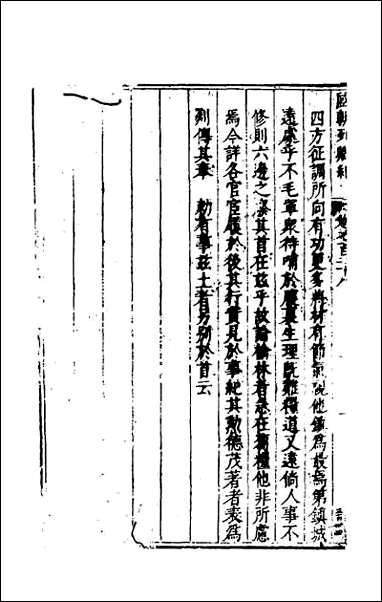 國朝列卿紀 卷之一百二十八
四方征調所向有功更多將材有節氣視他鎮為最焉第鎮城
遠處乎不毛軍眾待哺於生理既難糧道又遠倘人事不
修則六邊之其首在茲乎故論榆林者急在糧他非所慮
焉今詳各官官履於後其行實見於事紀其勳德茂著者表為
列傳其奉 勑有事茲土者另別於首云